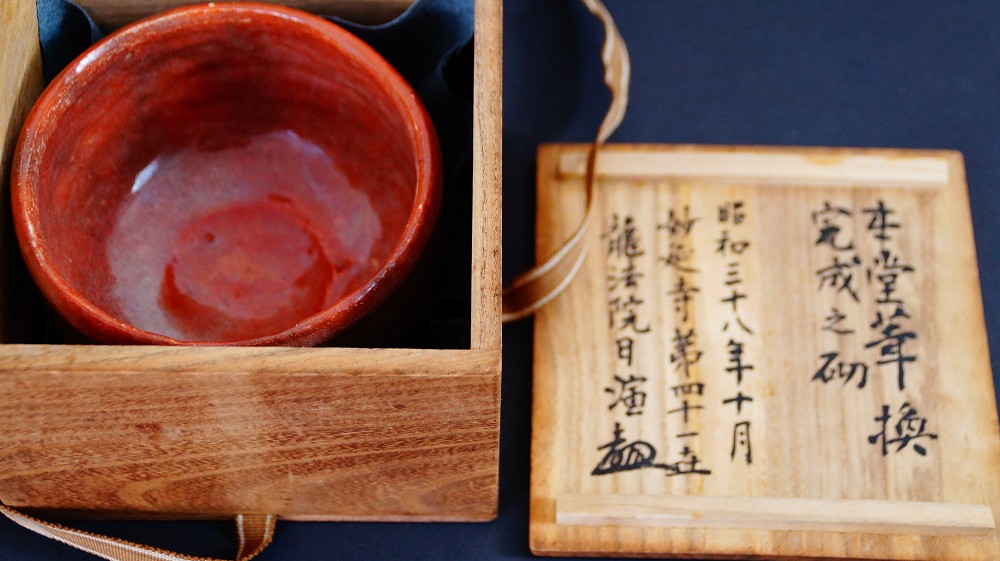 本堂葺換
完成之砌
昭和三十八年十月
妙延寺第四十一世
龍法院日演